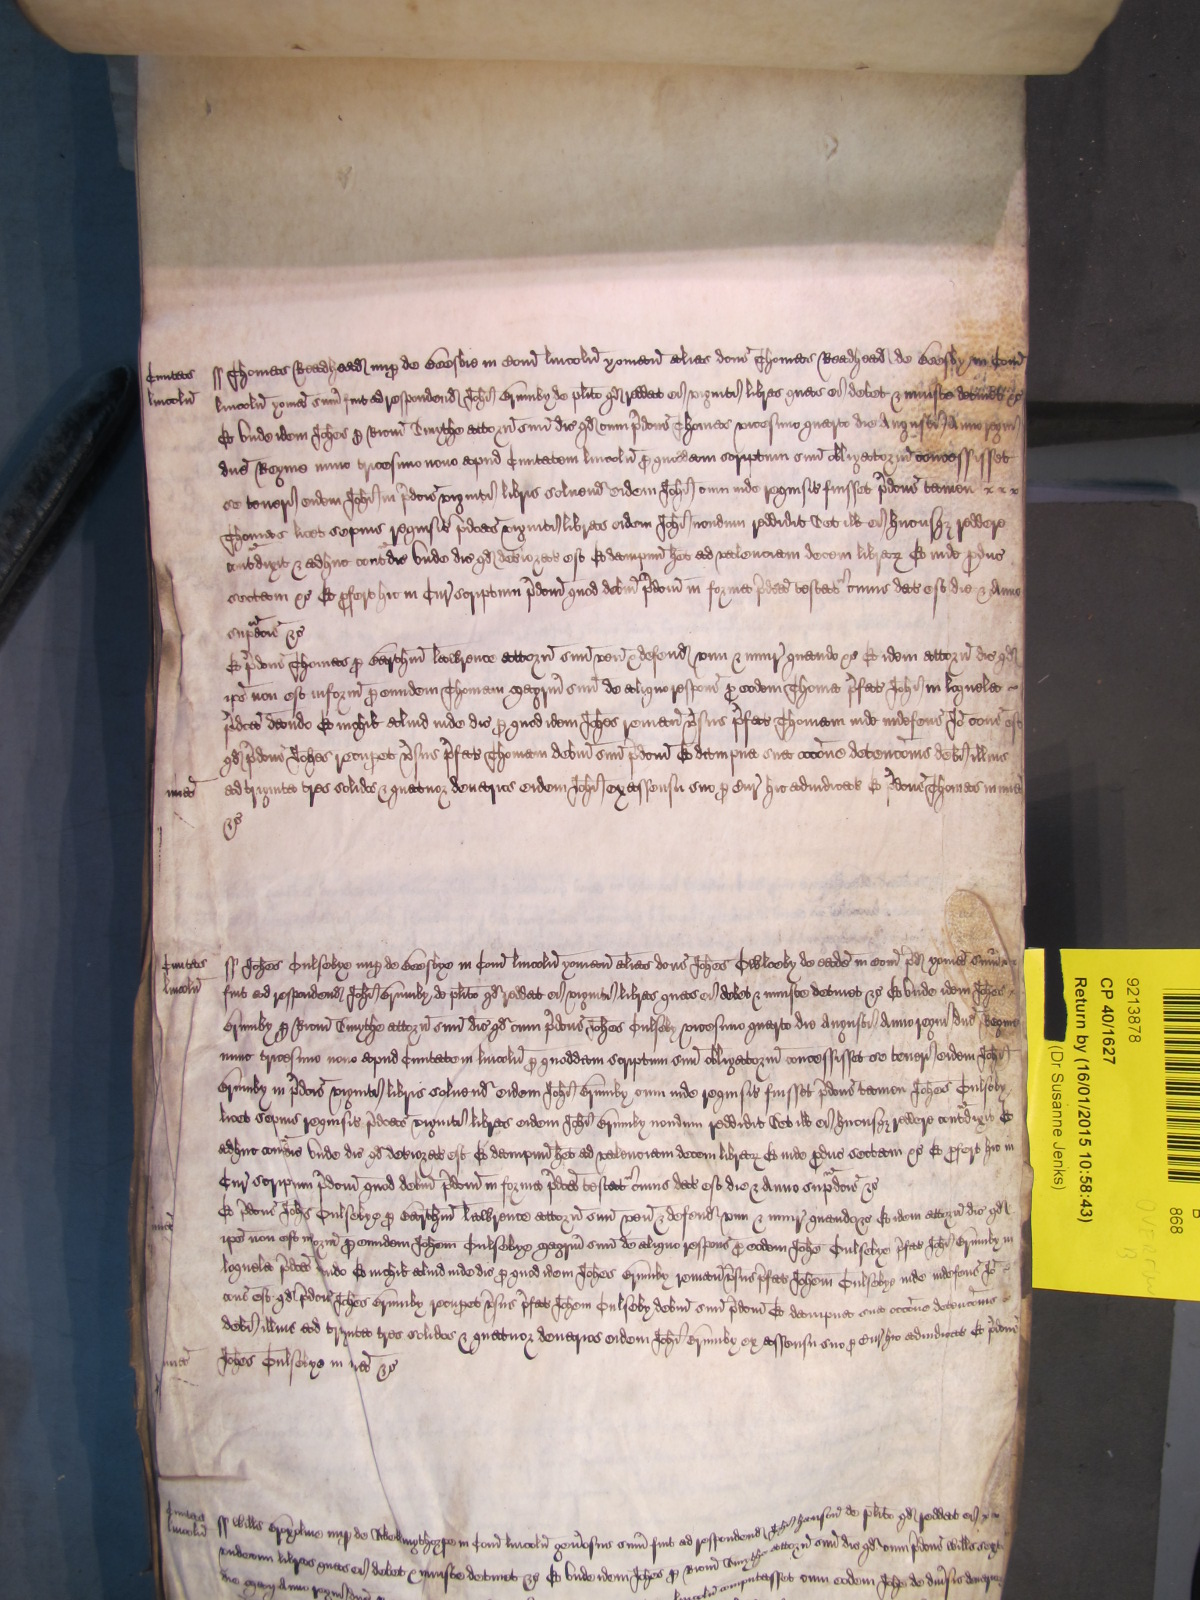 Civitas
lincoln
Thomas Readhead nup de Beesbie in Com lincoln yoman alias dcus Thomas Readhead de Beesby in Com
lincoln yoman sum fuit ad respondend Johi Grimby de plito qd reddat ei viginti libras quas ei debet & iniuste detinet &c
Et unde idem Johes p Ricum Smythe attorn suum dic qd cum pdcus Thomas vicesimo quarto die Augusti Anno regni
dne Regine nunc tricesimo nono apud Civitatem lincoln p quoddam scriptum suum obligatorium concessisset
se teneri eidem Johi in pdcis viginti libris solvend eidem Johi cum inde requisit fuisset pdcus tamen
Thomas licet sepius requisit pdcas viginti libras eidem Johi nondum reddidit set ill ei hucusq reddere
contradixit & adhuc contradic unde dic qd deteriorat est Et dampnum het ad valenciam decem librar Et inde producit
sectam &c Et profert hic in Cur scriptum pdcum quod debitum pdcum in forma pdca testat cuius dat est die & Anno
supradcis &c
Et pdcus Thomas p Barthm lawrence attorn suum ven & defend vim & iniur quando &c Et idem attorn dic qd
ipse non est informat p eundem Thomam magrum suum de aliquo respons p eodem Thoma pfat Johi in loquela
pdca dando Et nichil aliud inde dic p quod idem Johes reman vsus pfat Thomam inde indefens Io cons est
qd pdcus Johes recupet vsus pfat Thomam debitum suum pdcum Et dampna sua occone detencois debiti illius
mia
ad triginta tres solidos & quatuor denarios eidem Johi ex assensu suo p Cur hic adiudicat Et pdcus Thomas in mia
&c
Civitas
lincoln
Johes Culsebye nup de Beesbye in Com lincoln yoman alias dcus Johes de eadm in Com pd yoman sum
fuit ad respondend Johi Grimby de plito qd reddat ei viginti libras quas ei debet & iniuste detinet &c Et unde idem Johes
Grimby p Ricum Smythe attorn suum dic qd cum pdcus Johes Culseby vicesimo quarto die Augusti Anno regni dne Regine
nunc tricesimo nono apud Civitatem lincoln p quoddam scriptum suum obligatorium concessisset se teneri eidem Johi
Grimby in pdcis viginti libris solvend eidem Johi Grimby cum inde requisit fuisset pdcus tamen Johes Culseby
licet sepius requisit pdcas viginti libras eidem Johi Grimby nondum reddidit set ill ei hucusq reddere contradixit Et
adhuc contradic unde dic qd deteriorat est Et dampnum het ad valenciam decem librar Et inde producit sectam &c Et profert hic in
Cur scriptum pdcum quod debitum pdcum in forma pdca testat cuius dat est die & Anno supradcis &c
mia
Et pdcus Johes Culsebye p Barthm lawrence attorn suum ven & defend vim & iniur quando &c Et idem attorn dic qd
ipse non est informat p eundem Johem Culsebye magrum suum de aliquo respons p eodem Johe Culsebye pfat Johi Grimby in
loquela pdca dando Et nichil aliud inde dic p quod idem Johes Grimby reman vsus pfat Johem Culsebye inde indefens Io
cons est qd pdcus Johes Grimby recupet vsus pfat Johem Culseby debitum suum pdcum Et dampna sua occone detencois
debiti illius ad triginta tres solidos & quatuor denarios eidem Johi Grimby ex assensu suo p Cur hic adiudicat Et pdcus
mia
Johes Culsebye in mia &c
Civitas
lincoln
Wills nup de in Com lincoln generosus sum fuit ad respondend Johi de plito qd reddat ei
undecim libras quas ei debet & iniuste detinet &c Et unde idem Johes p Ricum Smythe attorn suum dic qd cum pdcus Wills
die Anno regni lincoln computasset cum eodem Johe de divsis
9213878
CP 40/1627
Return by (16/01/2015 10:58:43)
(Dr Susanne Jenks)
868